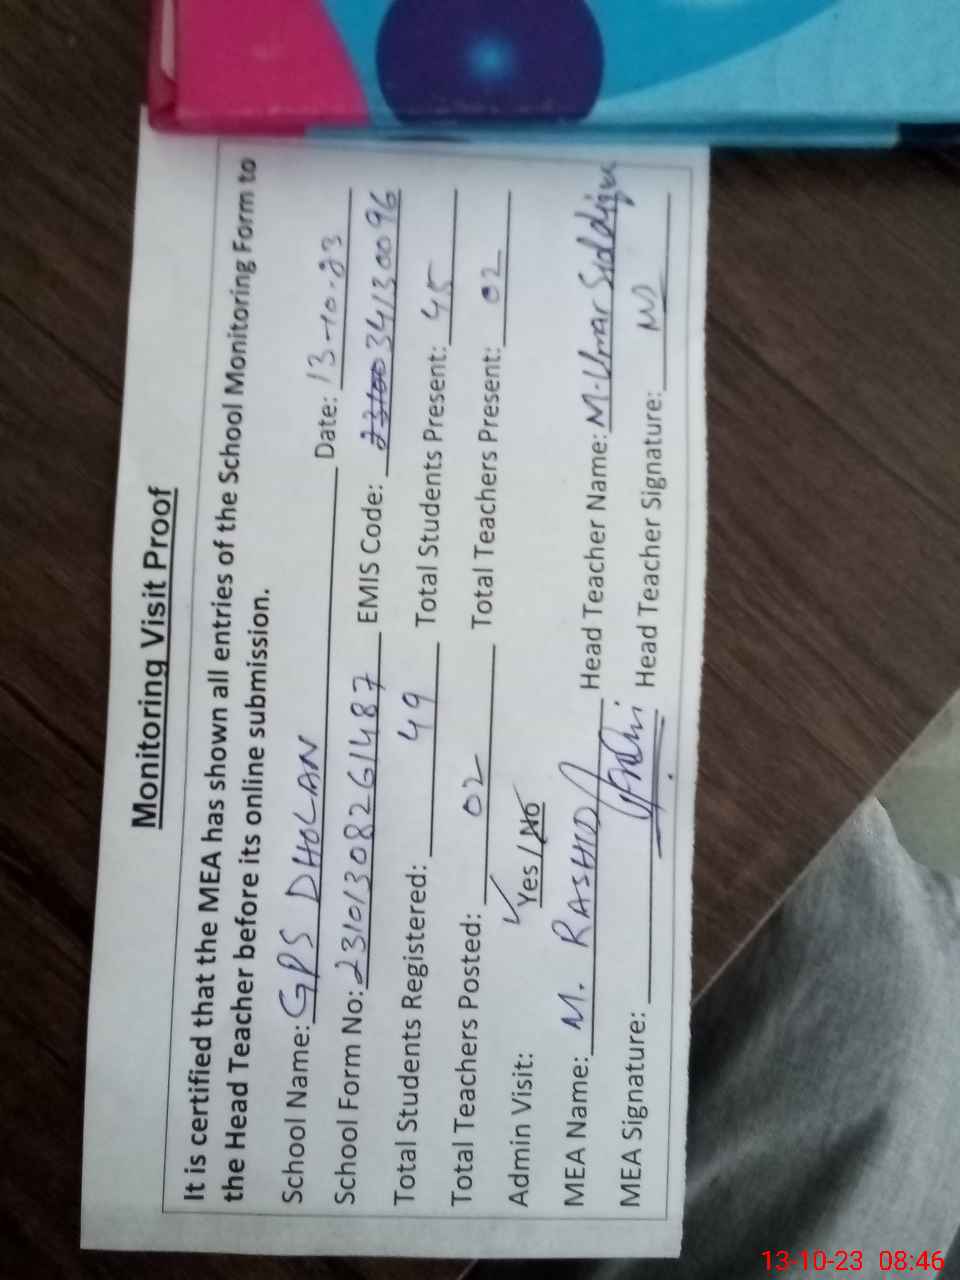 Monitoring Visit Proof
It is certified that the MEA has shown all entries of the School Monitoring Form to
the Head Teacher before its online submission.
School Name: GPS DHOLAN Date: 13-10-23
School Form No: 23101308261487 EMIS Code: 34130096
Total Students Registered: 49 Total Students Present: 45
Total Teachers Posted: 02 Total Teachers Present: 02
Admin Visit: Yes/No
MEA Name: M. RASHID Head Teacher Name: M-Umar Siddique
MEA Signature: Head Teacher Signature:
13-10-23 08:46